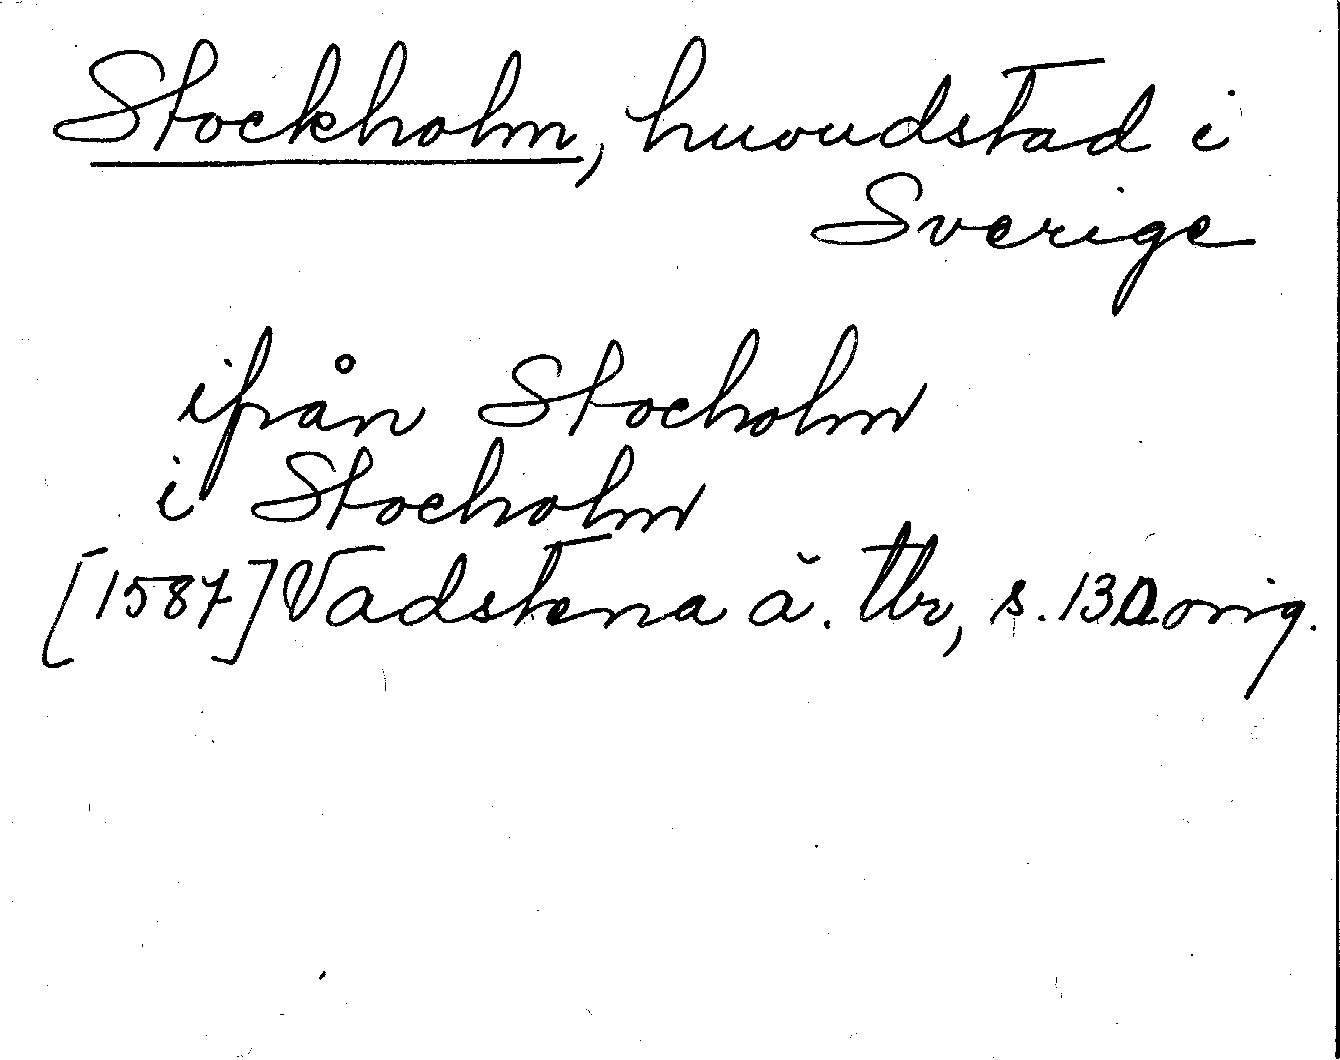 Stockholm, huvudstad i
Sverige
ifrån Stocholm
i Stocholm
[1587] Vadstena ä. tb, s. 130 orig.